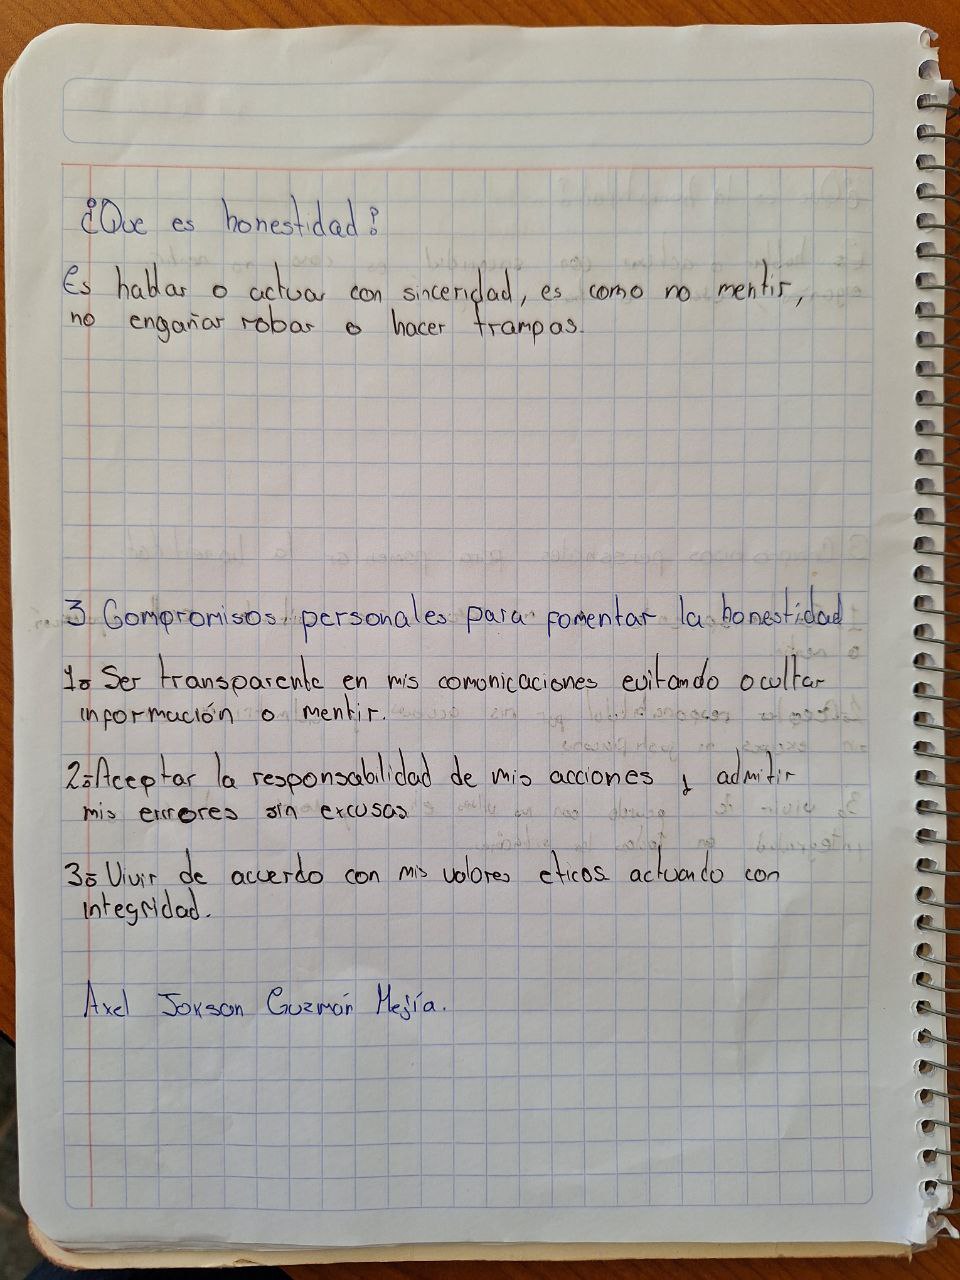 ¿Que es honestidad?
Es hablar o actuar con sinceridad, es como no mentir,
no engañar robar o hacer trampas.
3 Compromisos personales para fomentar la honestidad
1º Ser transparente en mis comonicaciones evitando ocultar
información o mentir.
2º Aceptar la responsabilidad de mis acciones y admitir
mis errores sin excusas
3º Vivir de acuerdo con mis valores eticos actuando con
integridad.
Axel Joxson Guzmán Mejía.